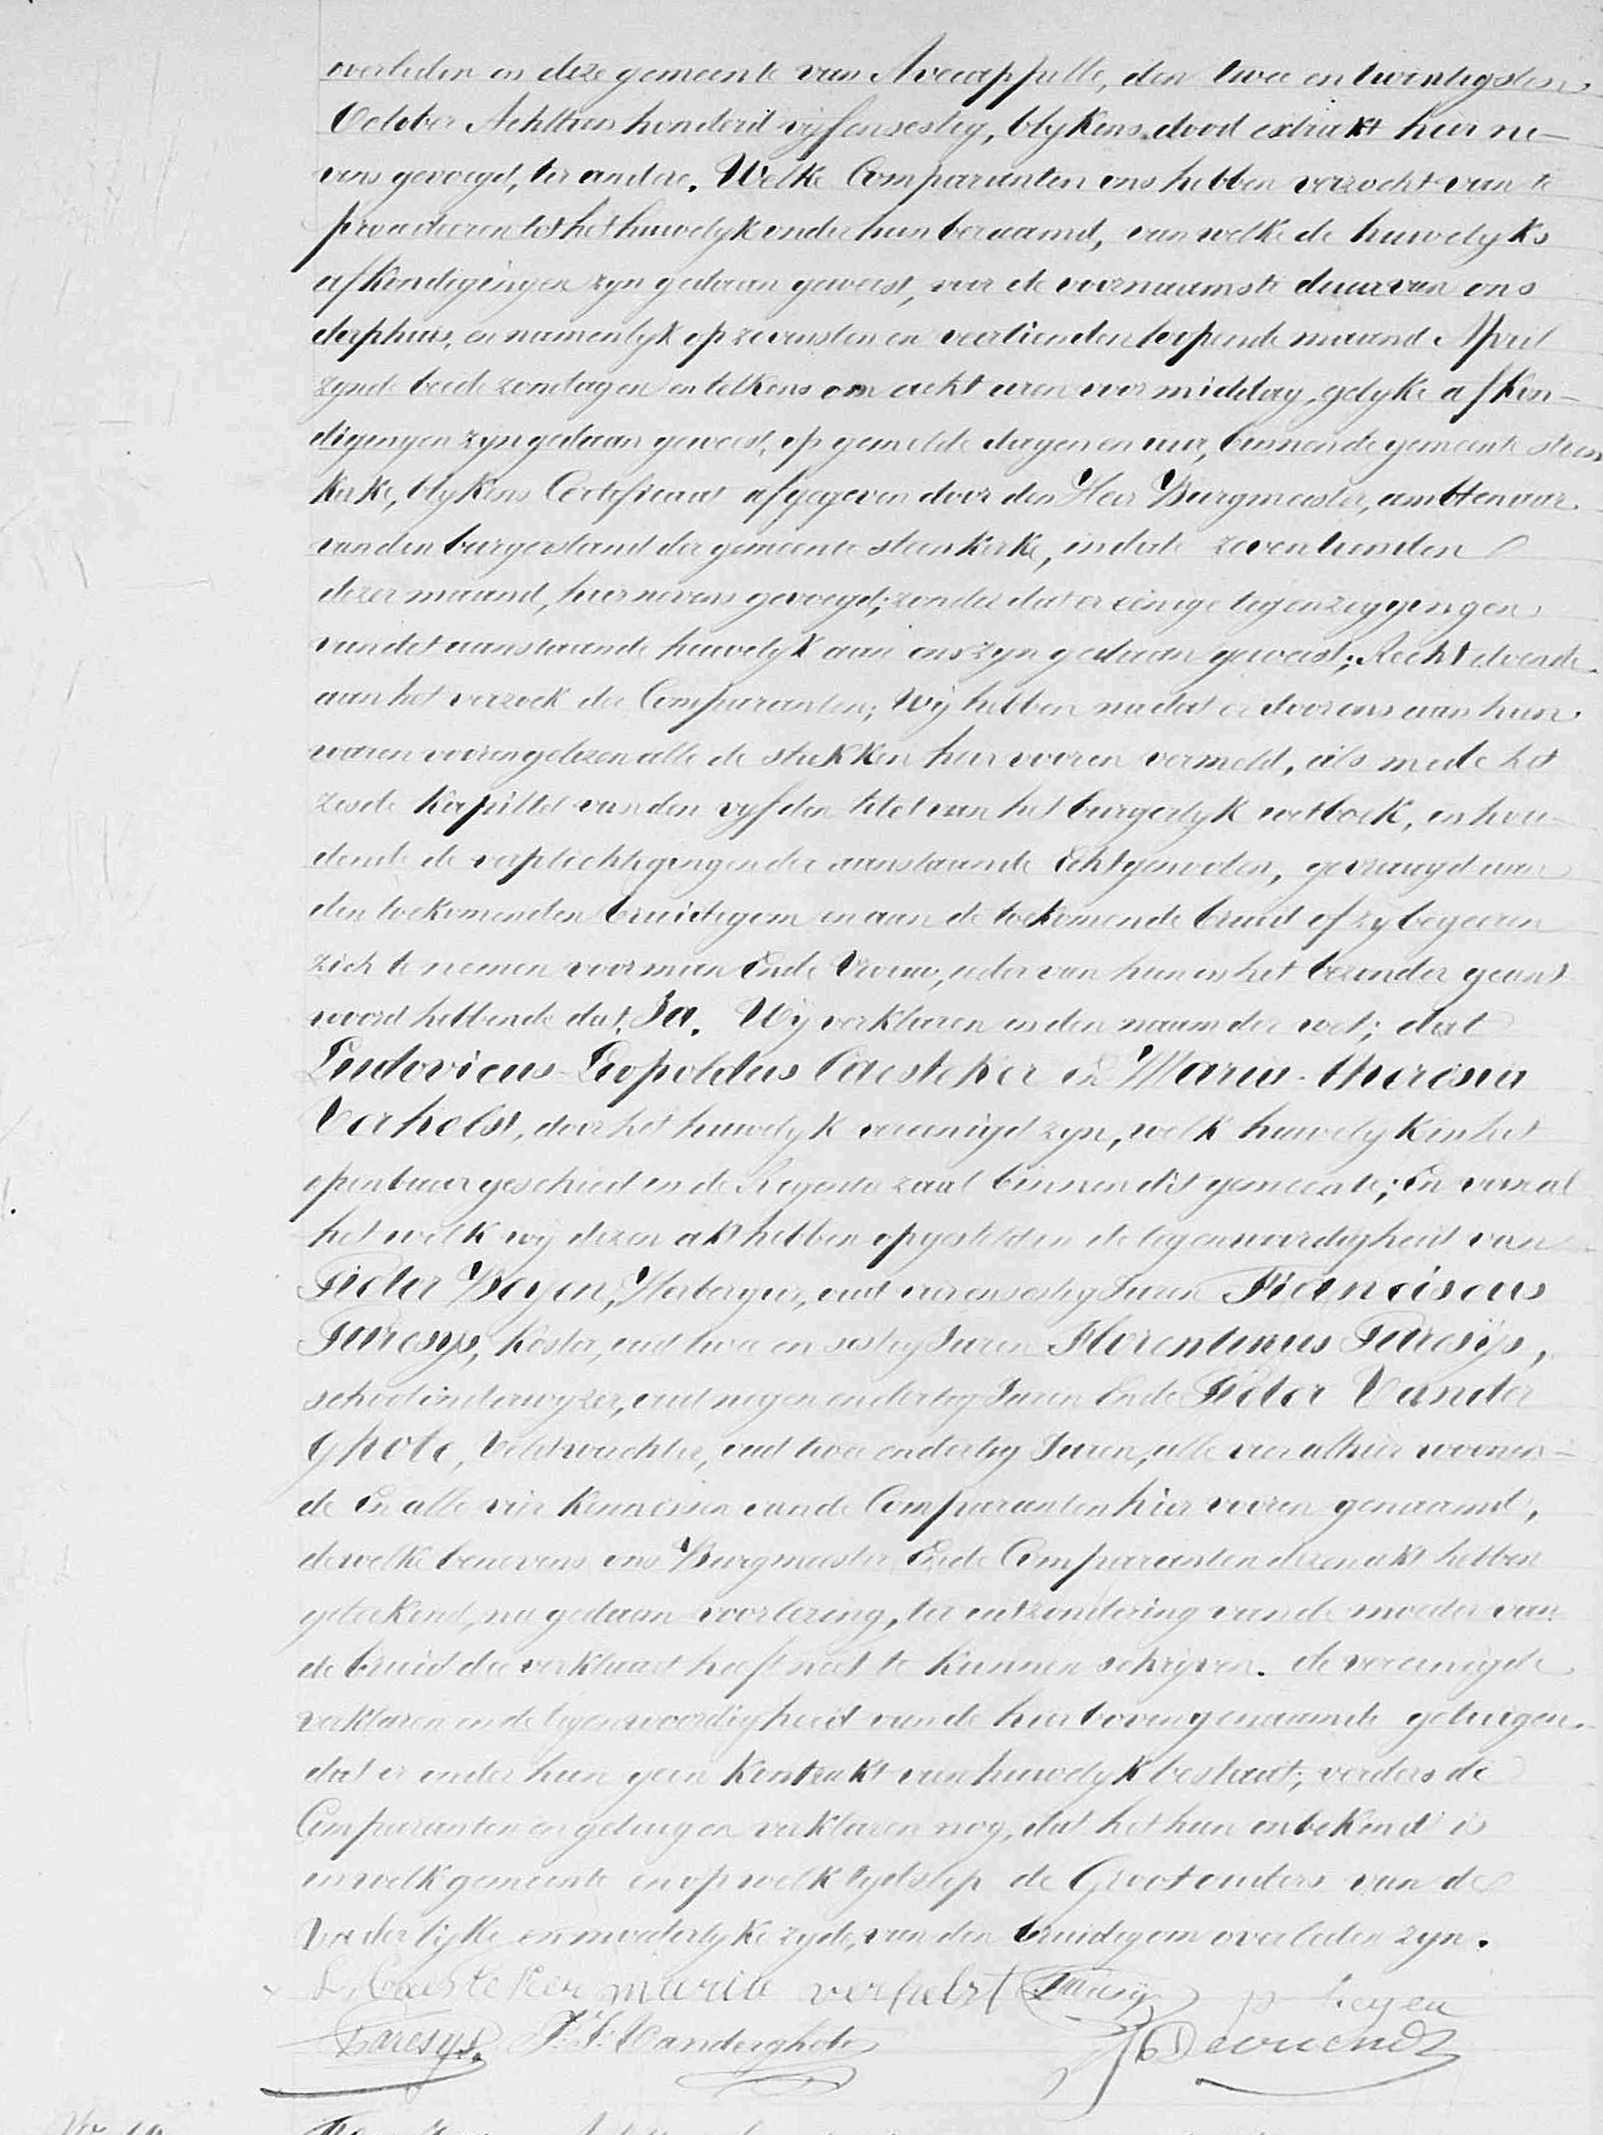 overleden in deze gemeente van Avecappelle, den twee en twintigsten
October Achttien honderd vijfensestig, blykens dood extrakt hier ne-
vens gevoegd, ter andere. Welke Comparanten ons hebben verzocht van te
procederen tot het huwelyk onder hun beraamd, van welke de huwelyks
afkondigingen zyn gedaan geweest, voor de voornaamste deur van ons
dorphuis, en namentlyk op zevensten en veertienden loopende maand April
zynde beide zondagen en telkens om acht uren voormiddag, gelyke afkon-
digingen zyn gedaan geweest, op gemelde dagen en uur, binnen de gemeente steen
kerke, blykens Certificaat afgegeven door den Heer Burgmeester, ambtenaar
van den burgerstand der gemeente steenkerke, in date zeventienden
dezer maand, hiernevens gevoegd; zonder dat er einige tegenzeggingen
van det aanstaande huwelyk aan ons zyn gedaan geweest; Recht doende
aan het verzoek der Comparanten; Wij hebben nadat er door ons aan hun
waren voorengelezen alle de stukken hier voren vermeld, als mede het
zesde kapittel van den vyfden titel van het burgerlyk wetboek, inhou-
dende de verplichtigingen der aanstaande Echtgenooten, gevraagd aan
den toekomenden bruidegom en aan de toekomende bruid of zy begeeren
zich te nemen voor man Ende Vrouw, ieder van hun in het bezonder geant
woord hebbende dat Ja. Wij verklaren in den naam der wet; dat
Ludovicus-Leopoldus Caesteker en Maria-theresia
Verhelst, door het huwelyk vereenigd zyn, welk huwelyk in het
openbaar geschied in de Regente zaal binnen dit gemeente; En van al
het welk wij dezen akt hebben opgesteld in de tegenwoordigheid van
Pieter Beyen, Herbergier, oud vierensestig Jaren Franciscus
Paresys, koster, oud twee en sestig Jaren Florentinus Paresÿs,
schoolonderwyzer, oud negen en dertig Jaren Ende Pieter Vander
Ghote, Veldwachter, oud twee endertig Jaren, alle vier alhier woonen-
de En alle vier kennissen van de Comparanten hier vooren genaamd,
dewelke benevens ons Burgmeester Ende Comparanten dezen akt hebben
geteekend, na gedaan voorlezing, ter uitzondering van de moeder van
de bruid die verklaart heeft niet te kunnen schrijven. de vereenigde
verklaren in de tegenwoordigheid van de hierboven genaamde getuigen
dat er onder hun geen kontrakt van huwelyk bestaat; verders de
Comparanten en getuigen verklaren nog, dat het hun onbekend is
in welk gemeente en op welk tydstip de Grootouders van de
Vaderlijke en moederlyke zyde, van den bruidegom overleden zyn.
L. Caesteker maria verhelst Paresys p Beyen
Paresys. P. J. Vanderghote Devriendt